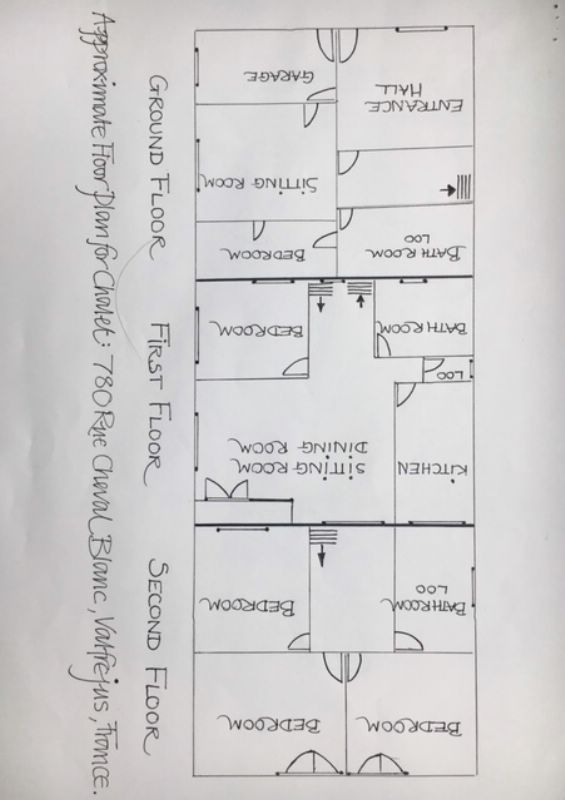 GARAGE
ENTRANCE
HALL
SITTING ROOM
BEDROOM
BATHROOM
LOO
GROUND FLOOR
BEDROOM
BATHROOM
LOO
SITTING ROOM
DINING ROOM
KITCHEN
FIRST FLOOR
BEDROOM
BATHROOM
LOO
BEDROOM
BEDROOM
SECOND FLOOR
Approximate Floor Plan for Chalet: 780 Rue Cheval Blanc, Valfrejus, France.